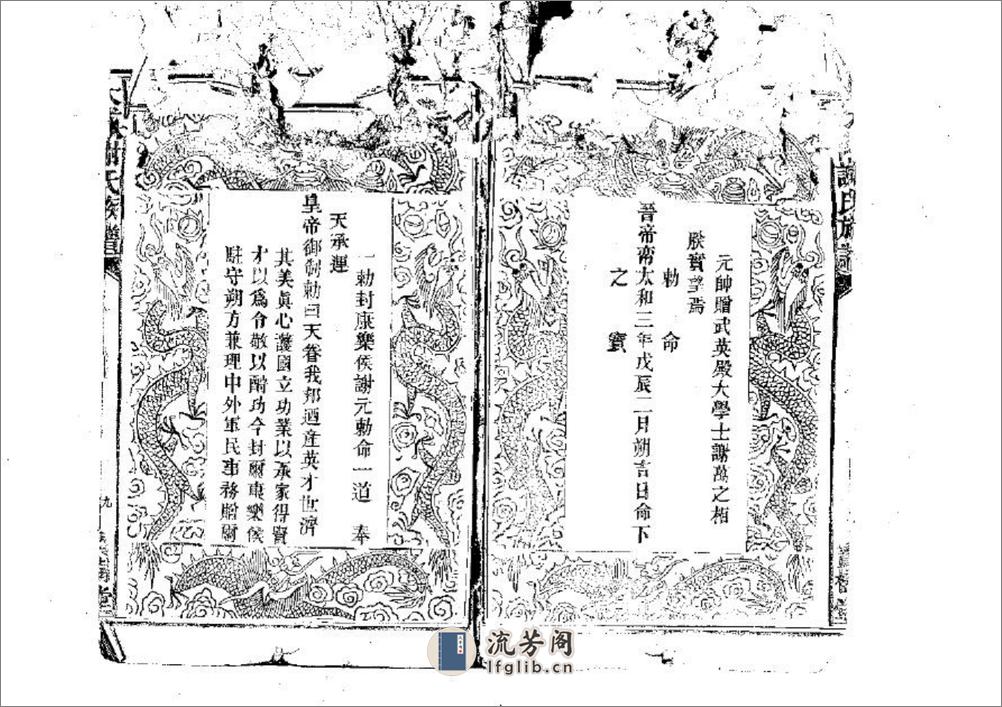 元帥贈武英殿大學士謝萬之柏
朕實望焉
勅命
晉帝 太和三年戊辰二月朔吉日命下
之寶
謝氏族譜
一勅封康樂侯謝元勅命一道 奉
天承運
皇帝御制勅曰天眷我邦迺產英才世濟
其美眞心護國立功業以承家得賢
才以爲令敬以酧功今封爾康樂侯
駐守朔方兼理中外軍民事務贈爾
謝氏族譜
九
堂
流芳阁
lfglib.cn